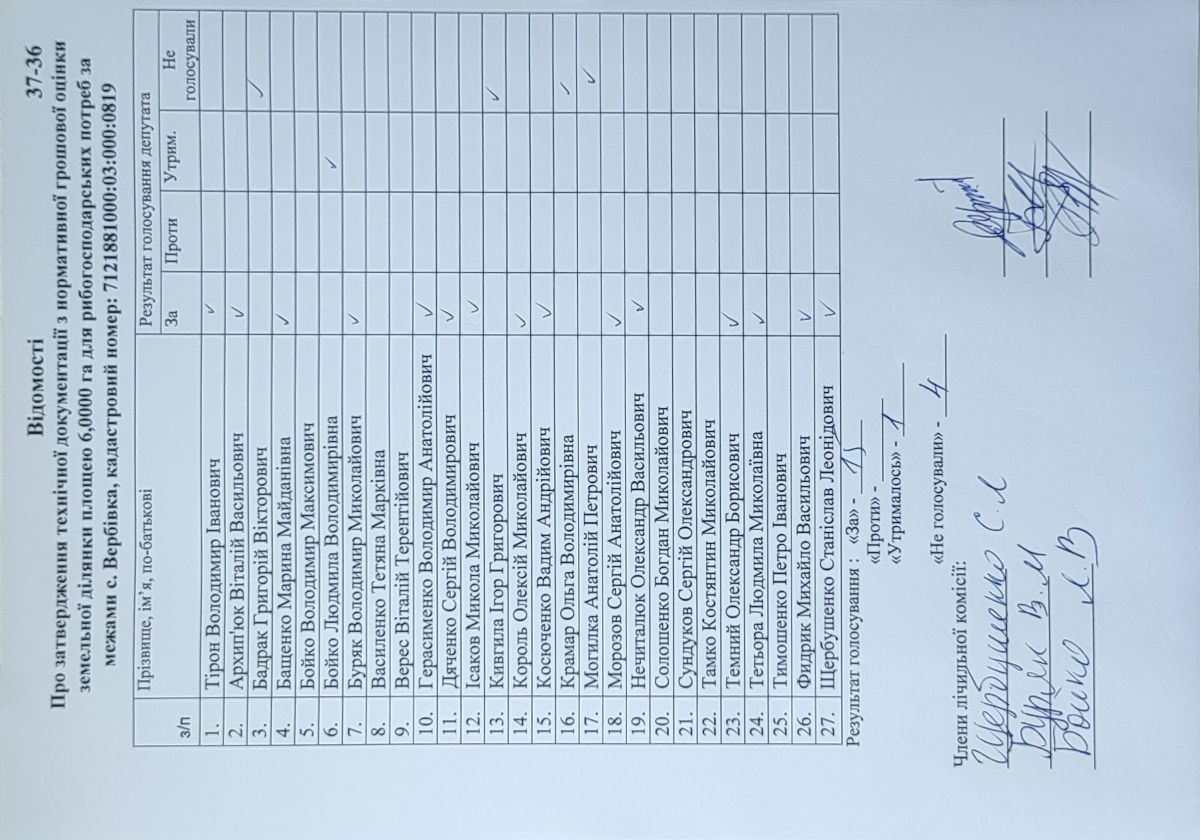 Відомості 37-36
Про затвердження технічної документації з нормативної грошової оцінки
земельної ділянки площею 6,0000 га для рибогосподарських потреб за
межами с. Вербівка, кадастровий номер: 7121881000:03:000:0819
з/п Прізвище, ім’я, по-батькові Результат голосування депутата
За Проти Утрим. Не
голосували
1. Тірон Володимир Іванович ✓
2. Архип'юк Віталій Васильович ✓
3. Бадрак Григорій Вікторович ✓
4. Бащенко Марина Майданівна ✓
5. Бойко Володимир Максимович
6. Бойко Людмила Володимирівна ✓
7. Буряк Володимир Миколайович ✓
8. Василенко Тетяна Марківна
9. Верес Віталій Терентійович
10. Герасименко Володимир Анатолійович ✓
11. Дяченко Сергій Володимирович ✓
12. Ісаков Микола Миколайович ✓
13. Кивгила Ігор Григорович ✓
14. Король Олексій Миколайович ✓
15. Косюченко Вадим Андрійович ✓
16. Крамар Ольга Володимирівна ✓
17. Могилка Анатолій Петрович ✓
18. Морозов Сергій Анатолійович ✓
19. Нечиталюк Олександр Васильович ✓
20. Солошенко Богдан Миколайович
21. Сундуков Сергій Олександрович
22. Тамко Костянтин Миколайович
23. Темний Олександр Борисович ✓
24. Тетьора Людмила Миколаївна ✓
25. Тимошенко Петро Іванович
26. Фидрик Михайло Васильович ✓
27. Щербушенко Станіслав Леонідович ✓
Результат голосування : «За» - 15
«Проти» -
«Утрималось» - 1
«Не голосували» - 4
Члени лічильної комісії:
Щербушенко С.Л
Буряк В.М
Бойко Л.В